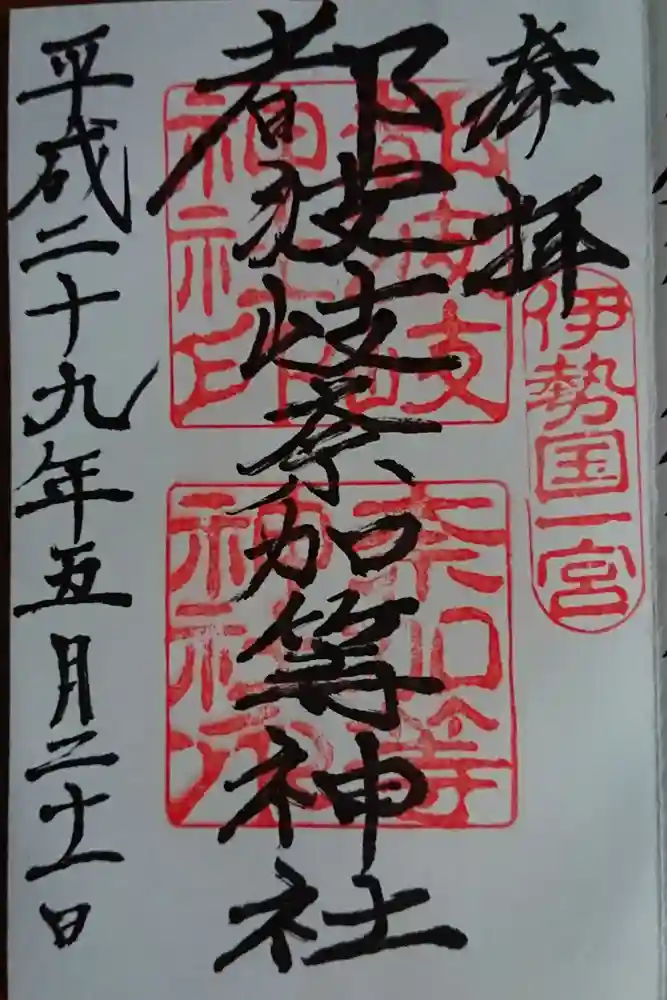 奉拝
伊勢国一宮
都波岐奈加等神社
都波岐
神社印
奈加等
神社
平成二十九年五月二十一日